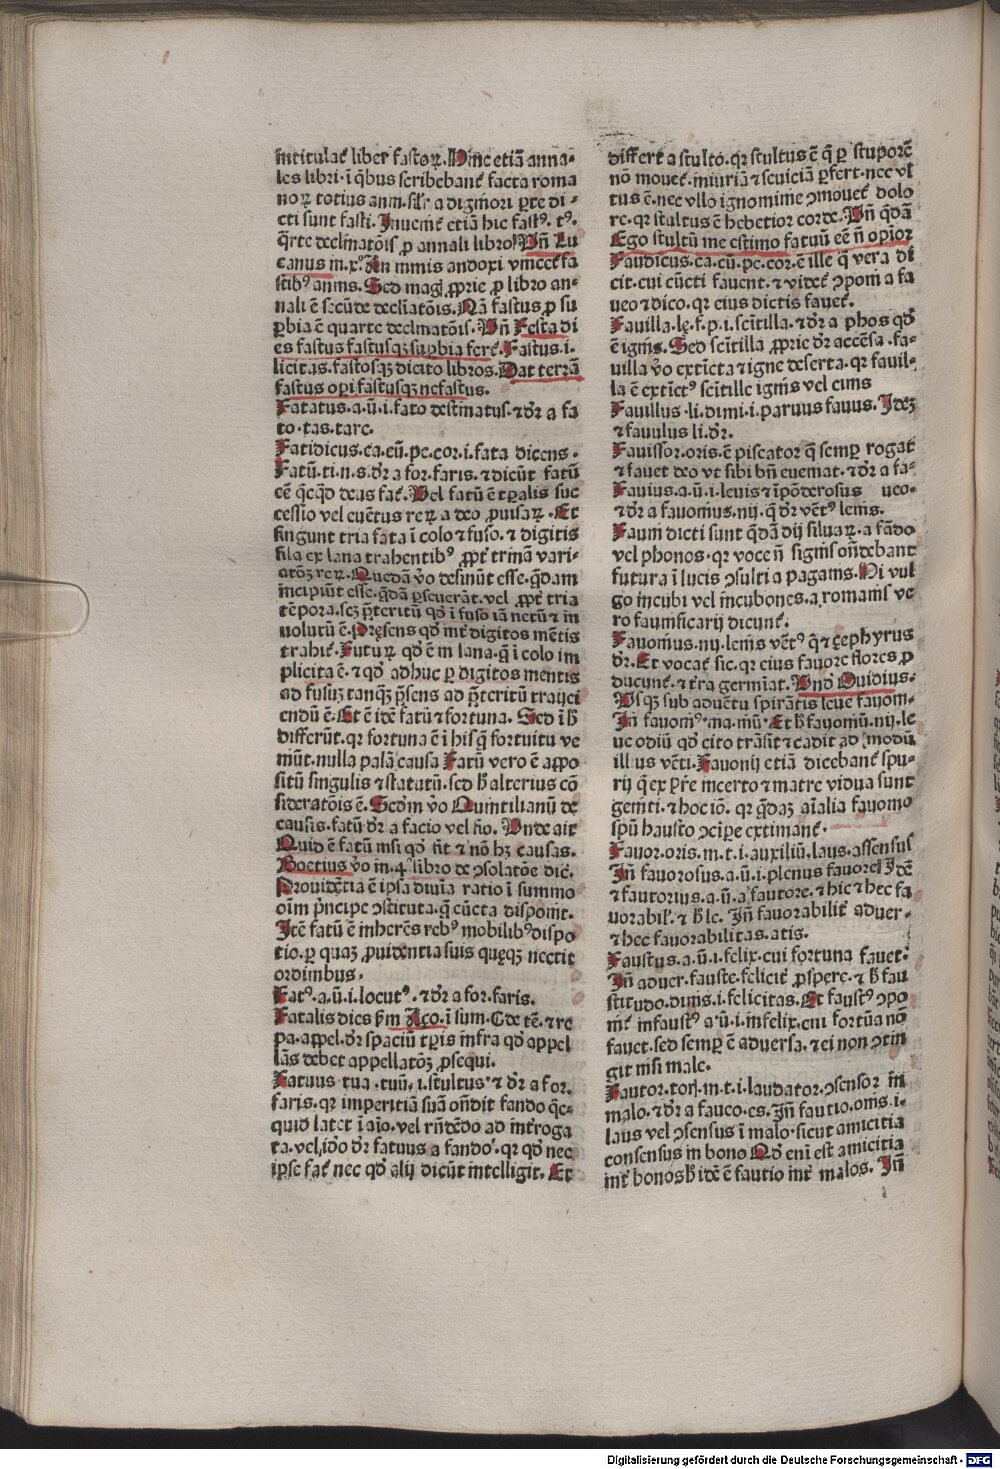 intitulat᷒ liber fastoꝝ. Hinc etiā anna-
les libri · ī q̄bus scribebant᷒ facta roma
noꝝ totius anni. silr a digniori p̱te di-
cti sunt fasti. Inuenit᷒ etiā hic fast⁹. t⁹.
q̄rte declinatōis ꝓ annali libro Vn̄ Lu
canus in.x°. An nimis andoxi vincet᷒ fa
stib⁹ annis. Sed magl ꝓprie ꝓ libro an-
nali ē secūde declīatōis. Nā fastus ꝓ su
ꝑbia ē quarte declinatōis. Vn̄ Festa di
es fastus fastusqꝫ suꝑbia fert᷒. Fastus.i.
licitas. fastosqꝫ dicito libros. Dat terrā
fastus opi fastusqꝫ nefastus.
Fatatus.a.ū.i.fato destinatus.⁊ dr̄ a fa
to·tas.tare.
Fatidicus.ca.cū.pe.cor.i.fata dicens·
Fatū.ti.n.s.dr̄ a for.faris.⁊ dicūt fatū
eē q̄cqd̄ deus fat᷒. Vel fatū ē tꝑalis suc
cessio vel euētus reꝝ a deo ꝓuisaꝝ·Et
fingunt tria fata ī colo ⁊ fuso.⁊ digitis
fila ex lana trahentib⁹ ꝓpt᷒ trinā vari-
atōꝫ reꝝ. Quedā v̄o desinūt esse. q̄dam
incipiūt esse. q̄dā ꝑseuerāt. vel ꝓpt᷒ tria
tēpora. scꝫ p̄teritū qd̄ ī fuso iā netū ⁊ in
uolutū ē. Pręsens qd̄ int᷒ digitos mētis
trahit᷒. Futuꝝ qd̄ ē in lana. q̄ ī colo im
plicita ē.⁊ qd̄ adhuc ꝑ digitos mentis
ad fusuꝫ tanqꝫ p̄sens ad p̄teritū trayci
endū ē. Et ē idē fatū ⁊ fortuna. Sed ī h̄
differūt. qꝛ fortuna ē ī his q̄ fortuitu ve
niūt. nulla palā causa Fatū vero ē appo
sitū singulis ⁊ statutū. sed h̄ alterius cō
sideratōis ē. Sedm v̄o Quintilianū de
causis. fatū dr̄ a facio vel fio. Vnde ait
Quid ē fatū nisi qd̄ fit ⁊ nō hꝫ causas.
Boetius v̄o in.4° libro de ꝯsolatōe dic̄.
Prouidētia ē ipsa diuīa ratio ī summo
oim p̄ncipe ꝯstituta. q̄ cūcta disponit.
Itē fatū ē inherēs reb⁹ mobilib⁹ dispo
tio. ꝑ quaꝫ ꝓuidentia suis quęqꝫ nectit
ordinibus.
Fat⁹.a.ū.i.locut⁹.⁊ dr̄ a for.faris.
Fatalis dies ẜm Açō. ī sum. Cde tē.⁊ re
pa. appel. dr̄ spaciū tꝑis infra qd̄ appel
lās debet appellatōꝫ ꝓsequi.
Fatuus·tua·tuū·i.stultus·⁊ dr̄ a for.
faris. qꝛ imperitiā suā on̄dit fando q̄c-
quid latet ī aīo. vel rn̄dēdo ad int᷒roga
ta. vel ido dr̄ fatuus a fando. qꝛ qd̄ nec
ipse fat᷒ nec qd̄ alij dicūt intelligit. Et
differt a stulto. qꝛ stultus ē q̄ ꝑ stuporē
nō mouet᷒. iniuriā ⁊ seuiciā ꝑfert. nec vl
tus ē. nec vllo ignominie ꝯmouet᷒ dolo
re. qꝛ stultus ē hebetior corde. Vn̄ q̄dā
Ego stultū me estimo fatuū eē n̄ opior
Faudicus.ca.cū.pe.cor.ē ille q̄ vera di
cit. cui cūcti fauent.⁊ videt᷒ ꝯponi a fa
ueo ⁊ dico. qꝛ eius dictis fauet᷒.
Fauilla.lę.f.p.i.scītilla.⁊ dr̄ a phos qd̄
ē ignis. Sed scītilla ꝓprie dr̄ accēsa. fa-
uilla v̄o extīcta ⁊ igne deserta. qꝛ fauil-
la ē extīct⁹ scītille ignis vel cinis
Fauillus·li.dimi.i.paruus fauus. Ideꝫ
⁊ fauulus li.dr̄.
Fauissor.oris.ē piscator q̄ semꝑ rogat
⁊ fauet deo vt sibi bn̄ eueniat.⁊ dr̄ a fa-
Fauius.a.ū.i.leuis ⁊ īpōderosus ueo-
⁊ dr̄ a fauonius.nij. q̄ dr̄ vēt⁹ lenis.
Fauni dicti sunt q̄dā dij siluaꝝ. a fādo
vel phonos·qꝛ voce n̄ signis on̄debant
futura ī lucis ꝯsulti a paganis. Hi vul
go incubi vel incubones. a romanis ve
ro faunificarij dicunt᷒.
Fauonius.nij.lenis vēt⁹ q̄ ⁊ çephyrus
dr̄. Et vocat᷒ sic. qꝛ eius fauore flores ꝓ
ducunt᷒.⁊ tr̄a germīat. Vnd̄ Ouidius.
Vsqꝫ sub aduētu spirātis leue fauoni-
In̄ fauoni⁹·na.niū·Et h̄ fauoniū.nij.le
ue odiū qd̄ cito trāsit ⁊ cadit ad modū
illius vēti. Fauonij etiā dicebant᷒ spu-
rij q̄ ex pr̄e incerto ⁊ matre vidua sunt
geniti.⁊ hoc iō. qꝛ q̄daꝫ aīalia fauonio
spū hausto ꝯciꝑe extimant᷒.
Fauor.oris.m.t.i.auxiliū.laus.assensus
In̄ fauorosus.a.ū.i.plenus fauore Idē
⁊ fautorius.a.ū.a fautore.⁊ hic ⁊ hec fa
uorabil᷒.⁊ h̄ le. In̄ fauorabilit᷒ aduer-
⁊ hec fauorabilitas.atis.
Faustus.a.ū.i.felix.cui fortuna fauet᷒.
In̄ aduer.fauste.felicit᷒ ꝓsꝑe.⁊ h̄ fau
stitudo.dinis.i.felicitas. Et faust⁹ ꝯpo
nit᷒ infaust⁹ a·ū.i.infelix.cui fortūa nō
fauet.sed semꝑ ē aduersa.⁊ ei non ꝯtin
git nisi male.
Fautor.torj.m.t.i.laudator.ꝯsensor in
malo.⁊ dr̄ a faueo.es. In̄ fautio.onis.i-
laus vel ꝯsensus ī malo·sicut amicitia
consensus in bono Qd̄ eni est amicitia
int᷒ bonos h̄ idē ē fautio int᷒ malos. In̄
Digitalisierung gefördert durch die Deutsche Forschungsgemeinschaft - DFG